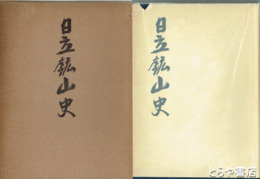 日立鉱山史
日立鉱山史
古書店
とらや書店